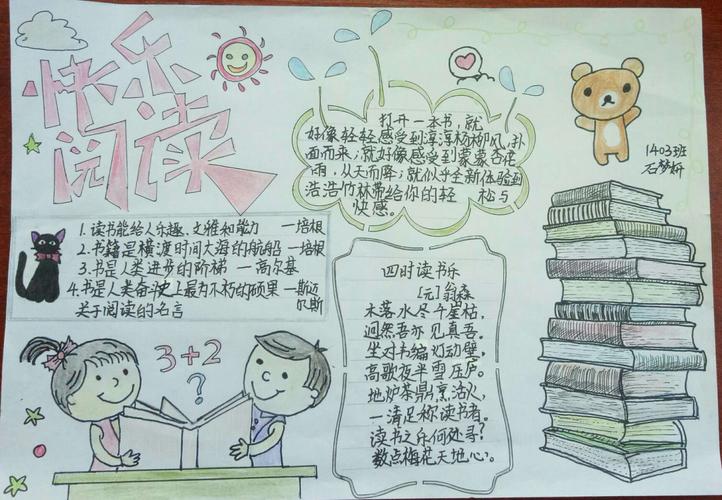 快乐
阅读
打开一本书，就
好像轻轻感受到淳淳杨柳风，扑
面而来；就好像感受到蒙蒙杏花
雨，从天而降；就似乎全新体验到
浩浩竹林带给你的轻 松与
快感。
1403班
石梦妍
1.读书能给人乐趣、文雅和能力 —培根
2.书籍是横渡时间大海的航船 —培根
3.书是人类进步的阶梯 —高尔基
4.书是人类奋斗史上最为不朽的硕果 —斯迈
尔斯
关于阅读的名言
四时读书乐
[元]翁森
木落水尽千崖枯，
迥然吾亦见真吾。
坐对书编灯动壁，
高歌夜半雪压庐。
地炉茶鼎烹活火，
一清足称读书者。
读书之乐何处寻？
数点梅花天地心。
3+2
?